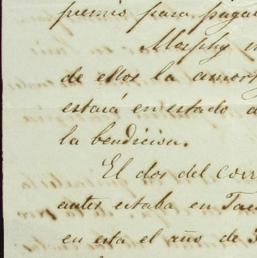 premio para paga
Morphy
de ellos la amor
estará en estado
la bendicion.
El dos del corr
antes estaba en Ta
en esta el año de 3